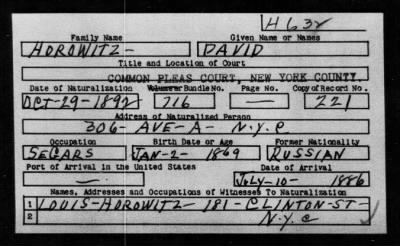 H632
Family Name Given Name or Names
HOROWITZ- DAVID
Title and Location of Court
COMMON PLEAS COURT, NEW YORK COUNTY.
Date of Naturalization Volume or Bundle No. Page No. Copy of Record No.
OCT-29-1892 716 — 221
Address of Naturalized Person
306- AVE-A- N.Y.C
Occupation Birth Date or Age Former Nationality
SEGARS JAN-2- 1869 RUSSIAN
Port of Arrival in the United States Date of Arrival
— JULY-10- 1886
Names, Addresses and Occupations of Witnesses To Naturalization
1 LOUIS-HOROWITZ- 181-CLINTON-ST-
2 N.Y.C